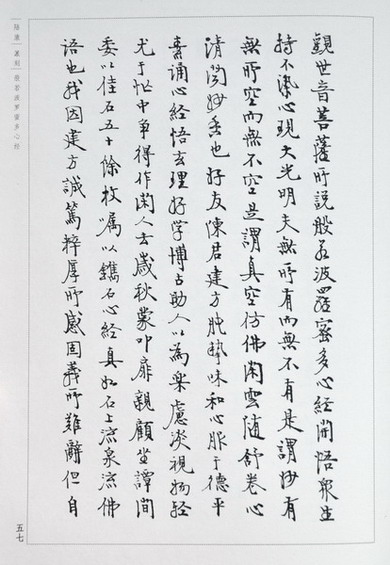 陸康篆刻般若波羅蜜多心經
觀世音菩薩所說般若波羅蜜多心經開悟眾生
持不染心現大光明夫無所有而無不有是謂妙有
無所空而無不空是謂真空仿佛閑雲隨舒卷心
清聞妙香也好友陳君建方肫摯味和心服于德平
素誦心經悟玄理好学博古助人以為樂慮淡視物輕
尤于忙中爭得作閑人去歲秋蒙叩扉親顧坐譚間
委以佳石五十餘枚囑以鐫石心經真如石上流泉流佛
語也我因建方誠篤粹厚所感固義所難辭但自
五七